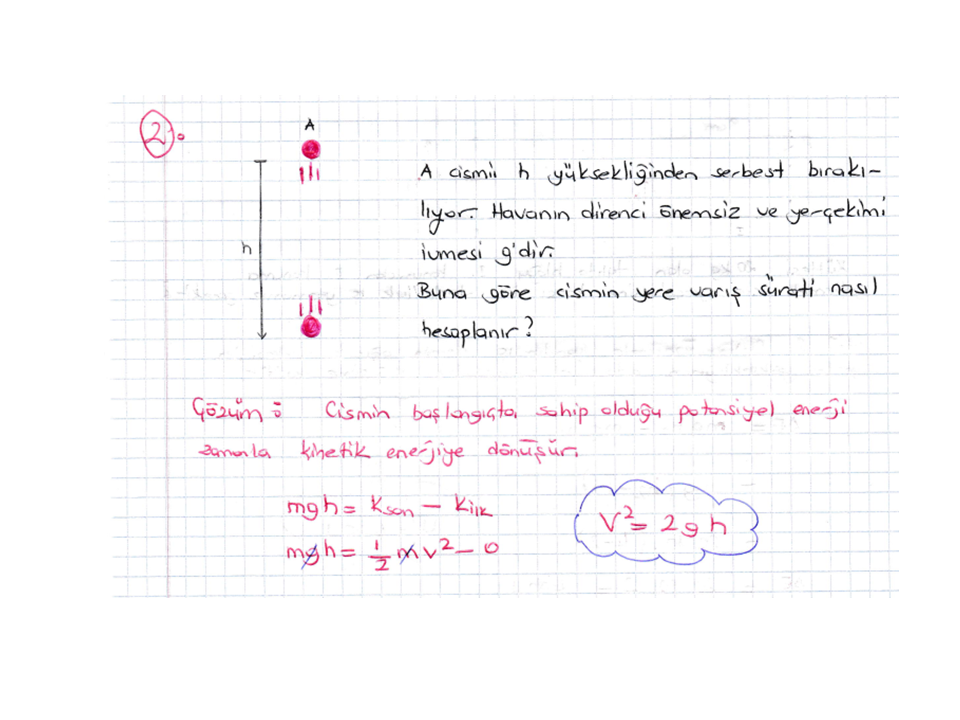 2.
A
h
A cismi h yüksekliğinden serbest bırakı-
lıyor. Havanın direnci önemsiz ve yerçekimi
ivmesi g'dir.
Buna göre cismin yere varış sürati nasıl
hesaplanır?
Çözüm : Cismin başlangıçta sahip olduğu potansiyel enerji
zamanla kinetik enerjiye dönüşür.
mgh = Kson - Kilk
mgh = 1/2 mv² - 0
V² = 2gh